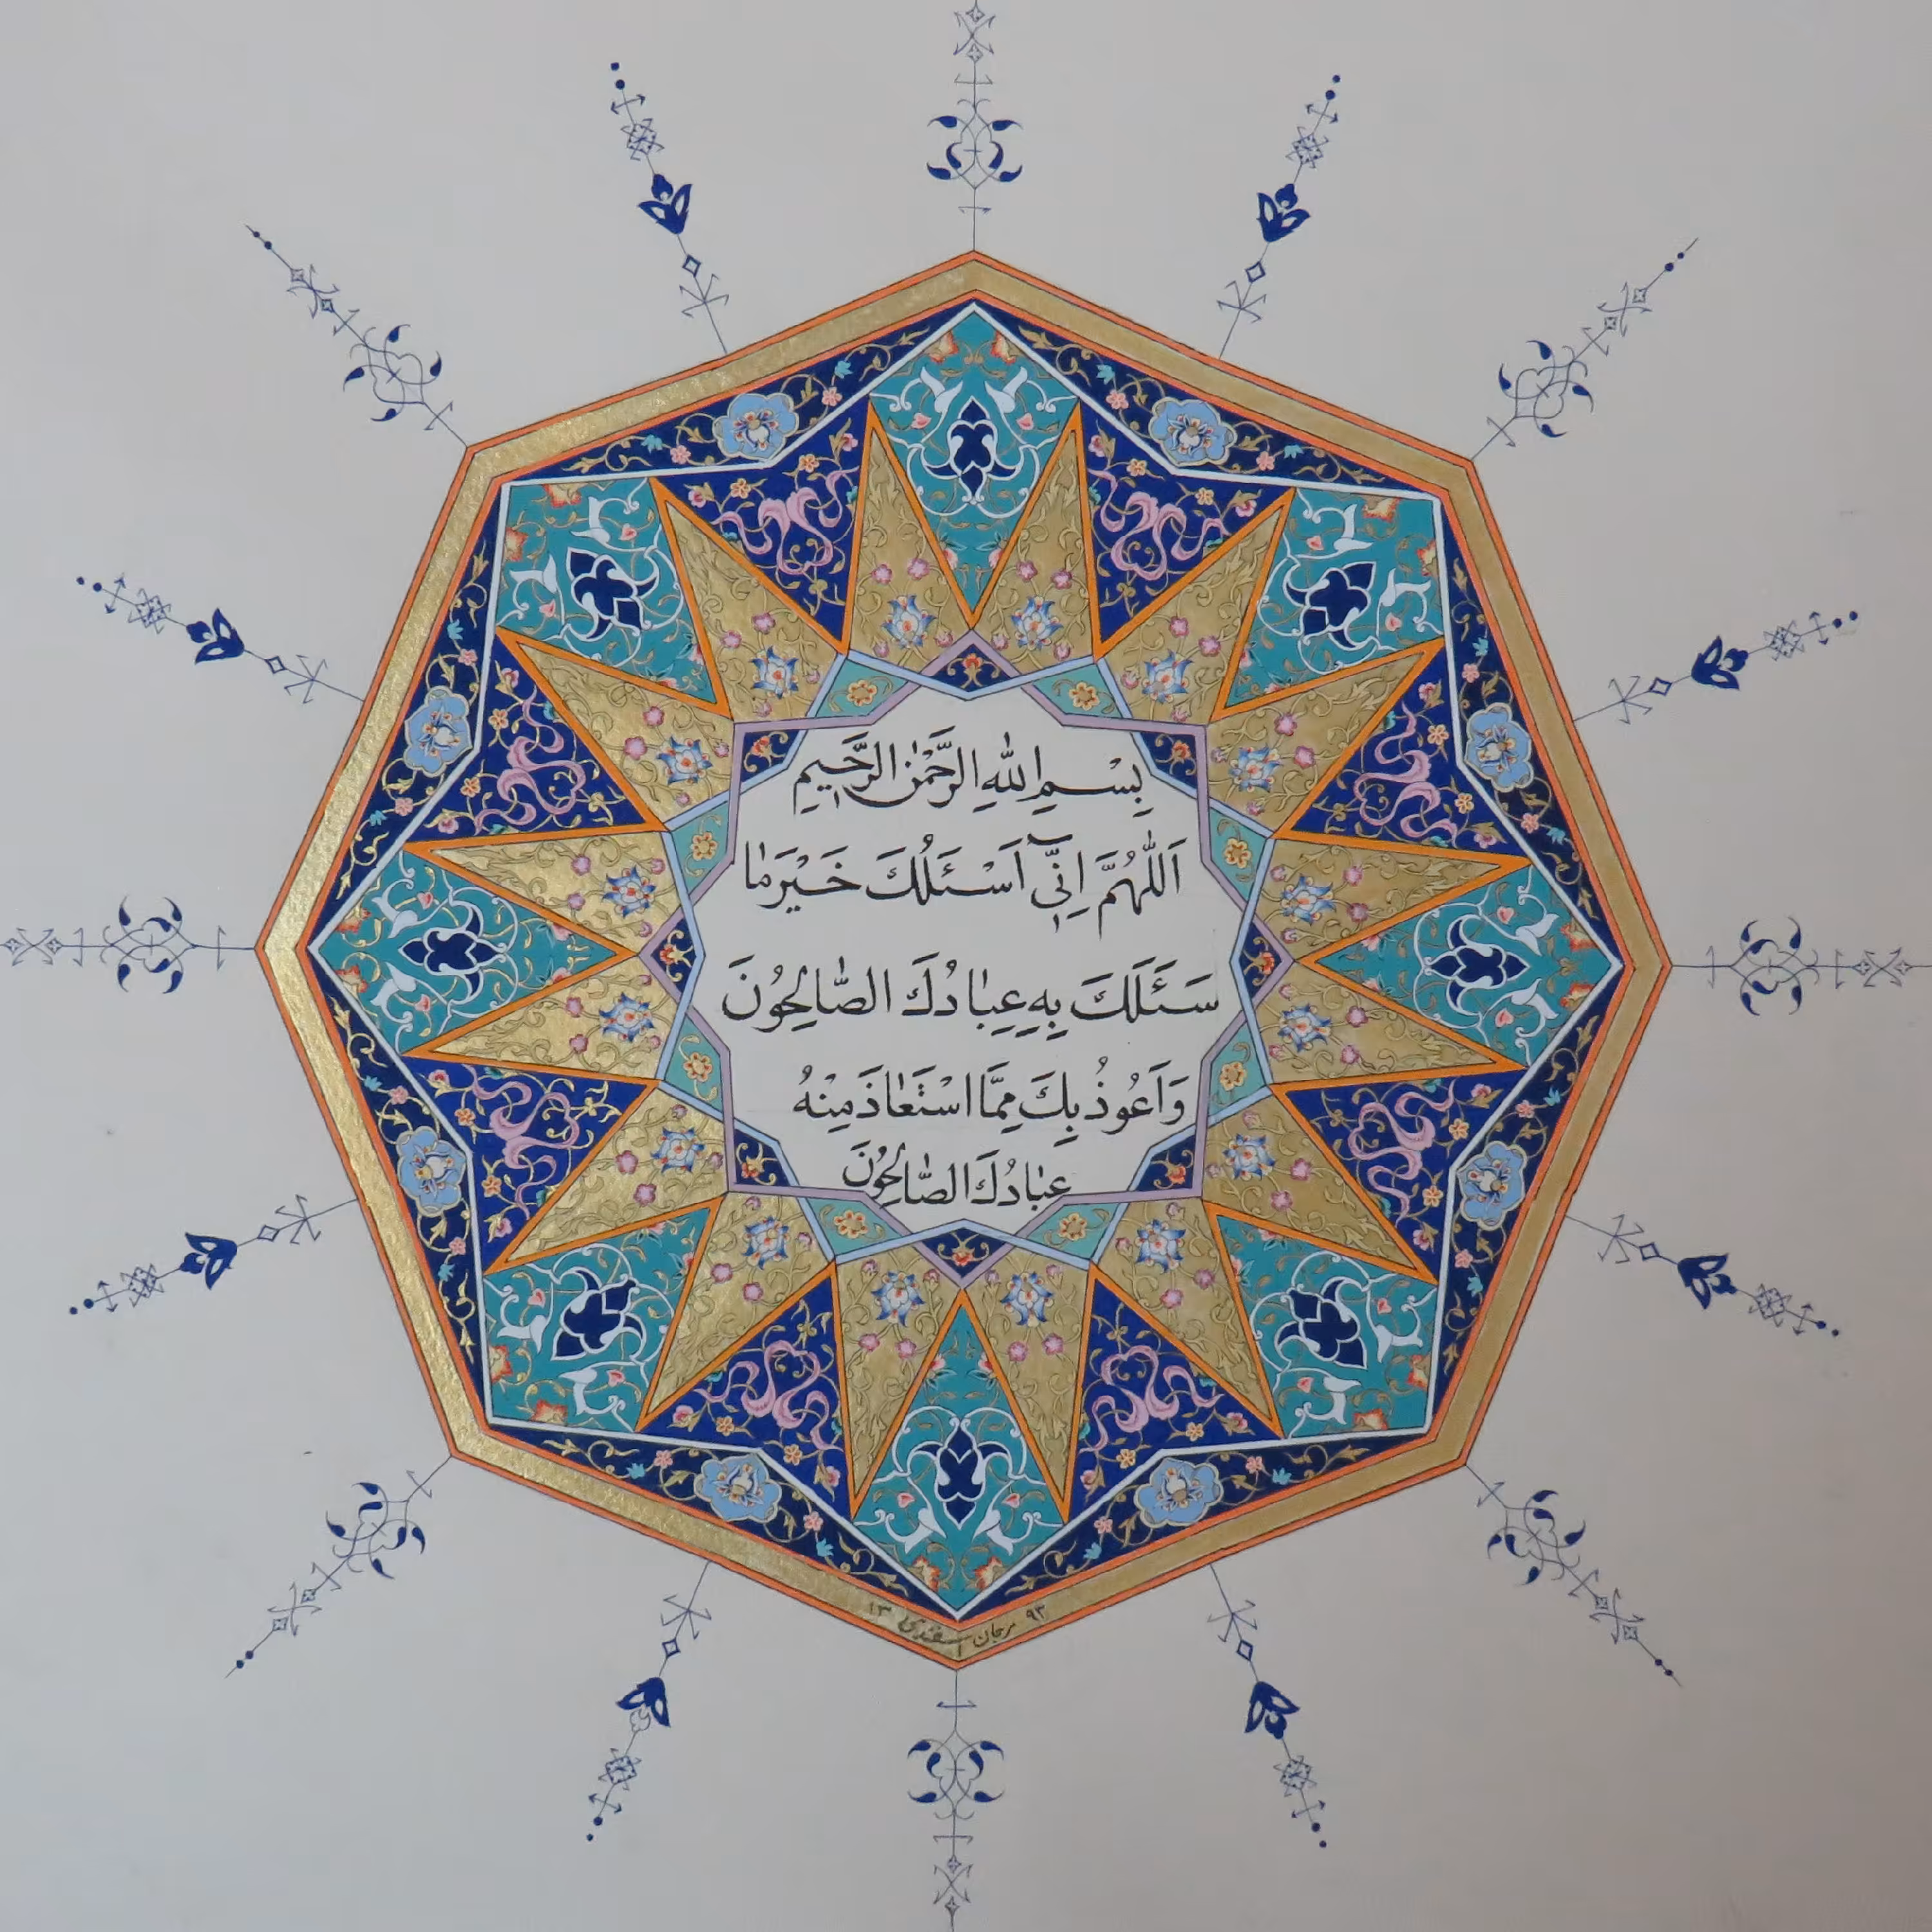 بِسْمِ اللّٰهِ الرَّحْمٰنِ الرَّحيمِ
اَللّٰهُمَّ اِنّيٓ اَسْئَلُكَ خَيْرَ مٰا
سَئَلَكَ بِهِ عِبٰادُكَ الصّٰالِحُونَ
وَاَعُوذُ بِكَ مِمَّا اسْتَعٰاذَ مِنْهُ
عِبٰادُكَ الصّٰالِحُونَ
۱۳ ۹۳
مرجان اسفندی